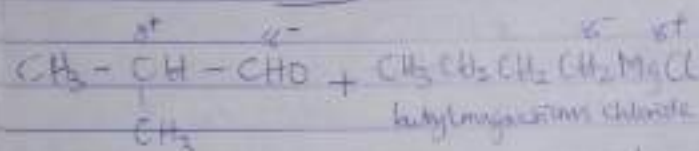 δ+ δ- δ- δ+
CH3 - CH - CHO + CH3 CH2 CH2 CH2 MgCl
|
CH3
butylmagnesium chloride